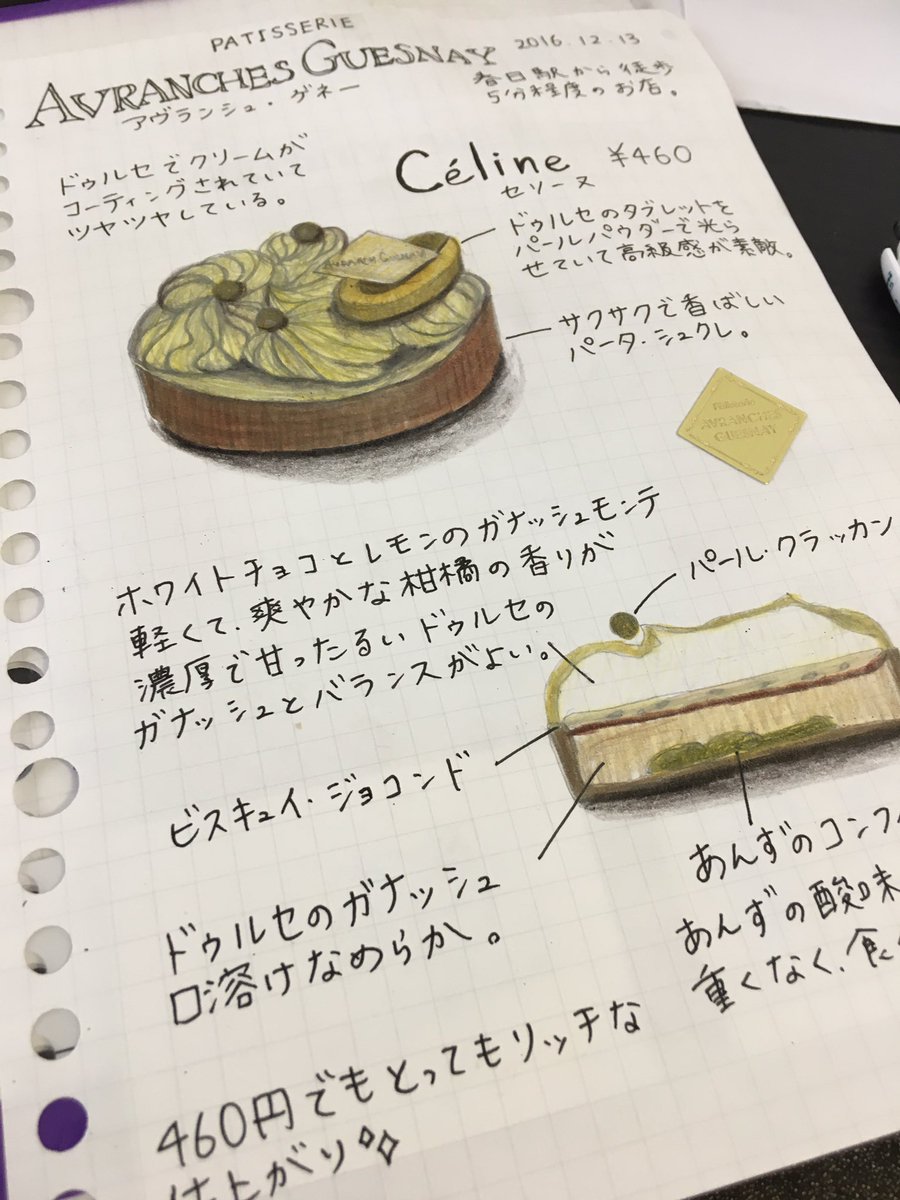 PATISSERIE
AVRANCHES GUESNAY
アヴランシュ・ゲネー
2016.12.13
春日駅から徒歩
5分程度のお店。
Céline ¥460
セリーヌ
ドゥルセでクリームが
コーティングされていて
ツヤツヤしている。
AVRANCHES GUESNAY
ドゥルセのタブレットを
パールパウダーで光ら
せていて高級感が素敵。
サクサクで香ばしい
パータ・シュクレ。
Pâtisserie
AVRANCHES
GUESNAY
ホワイトチョコとレモンのガナッシュモンテ
軽くて、爽やかな柑橘の香りが
濃厚で甘ったるいドゥルセの
ガナッシュとバランスがよい。
パール・クラッカン
ビスキュイ・ジョコンド
ドゥルセのガナッシュ
口溶けなめらか。
あんずのコンフィ
あんずの酸味
重くなく、食べ
460円でもとってもリッチな
仕上がり